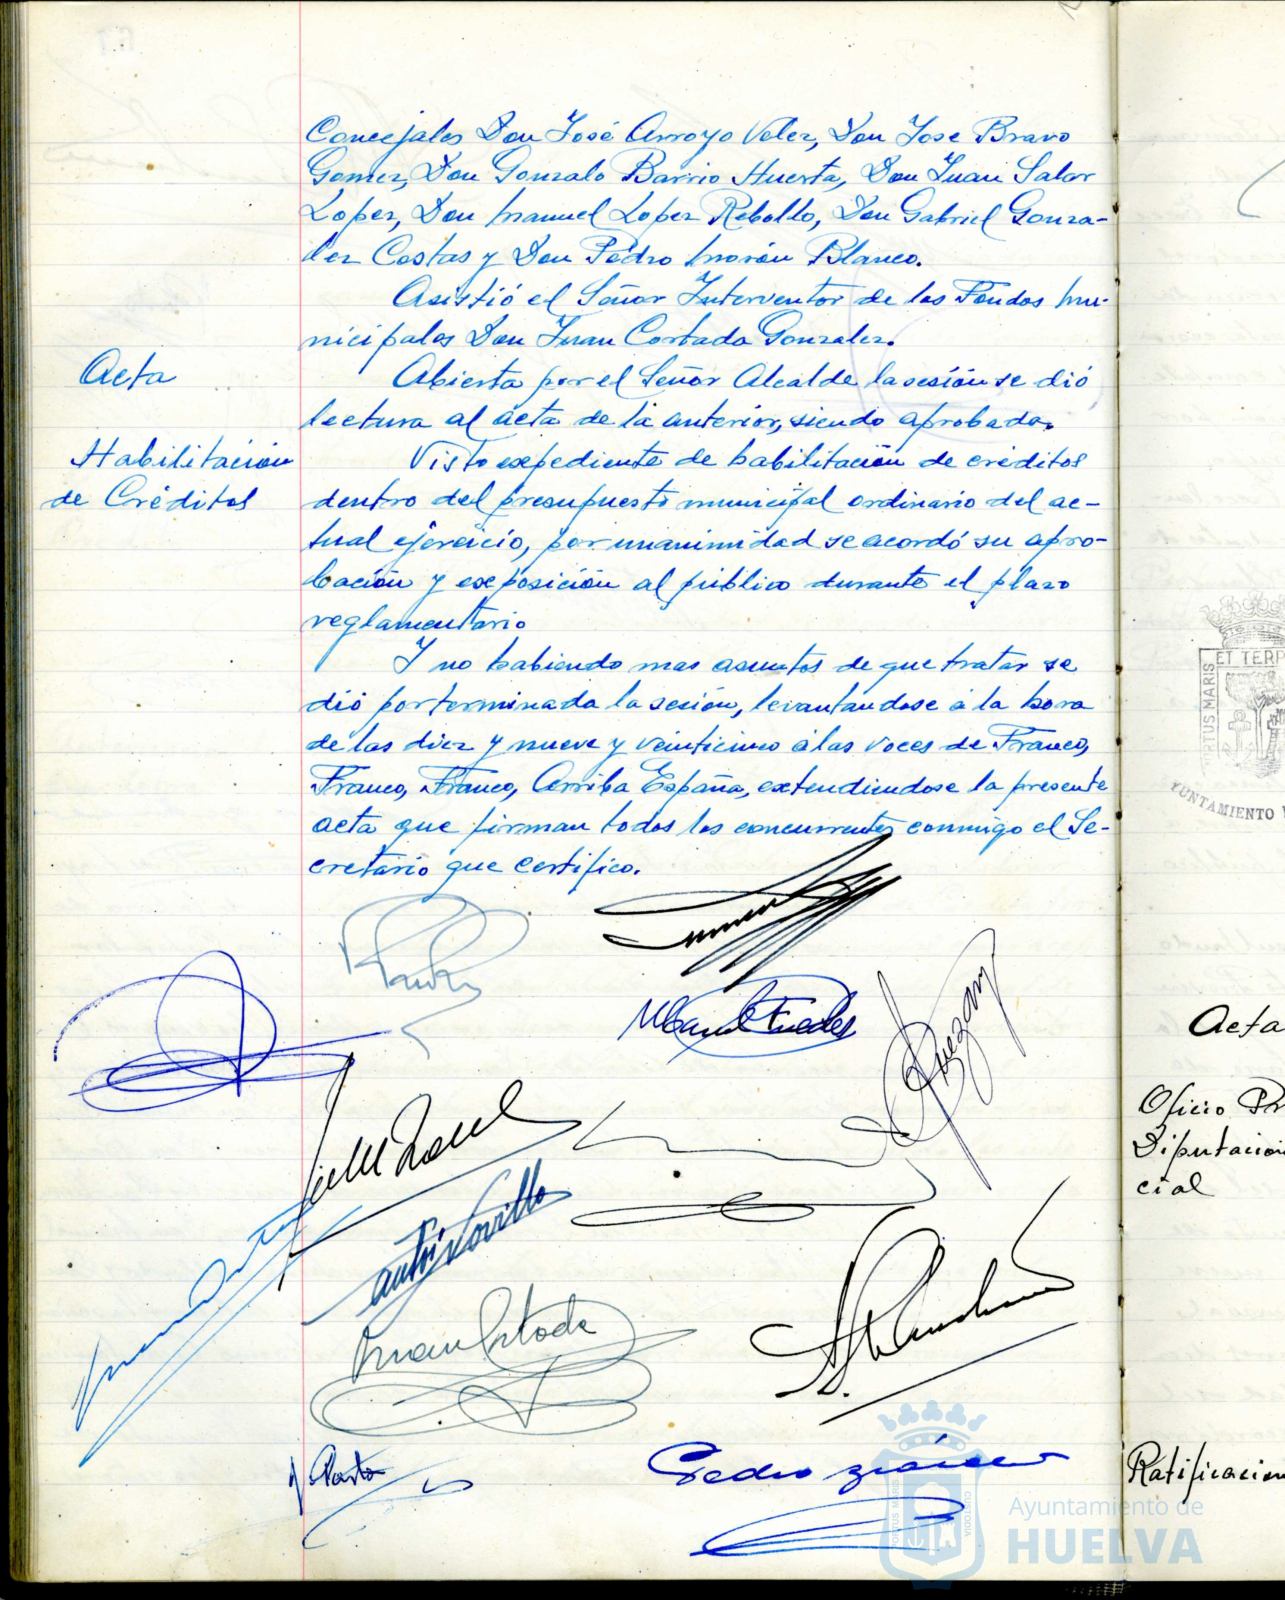 Concejales Don José Arroyo Velez, Don Jose Bravo
Gomez, Don Gonzalo Barrio Huerta, Don Juan Salar
Lopez, Don Manuel Lopez Rebollo, Don Gabriel Gonza-
lez Costas y Don Pedro Morón Blanco.
Asistió el Señor Interventor de los Fondos Mu-
nicipales Don Juan Cortada Gonzalez.
Acta
Abierta por el Señor Alcalde la sesión se dió
lectura al acta de la anterior, siendo aprobada.
Habilitación
de Créditos
Visto expediente de habilitación de créditos
dentro del presupuesto municipal ordinario del ac-
tual ejercicio, por unanimidad se acordó su apro-
bación y exposición al público durante el plazo
reglamentario
Y no habiendo mas asuntos de que tratar se
dió por terminada la sesión, levantandose á la hora
de las diez y nueve y veinticinco á las voces de Franco,
Franco, Franco, Arriba España, extendiendose la presente
acta que firman todos los concurrentes conmigo el Se-
cretario que certifico.
Juan Cortada
Pedro
Acta
Oficio Pr
Diputacion
cial
Ratificacion
ET TERR
PORTUS MARIS
YUNTAMIENTO
PORTUS MARIS
CUSTODIA
Ayuntamiento de
HUELVA